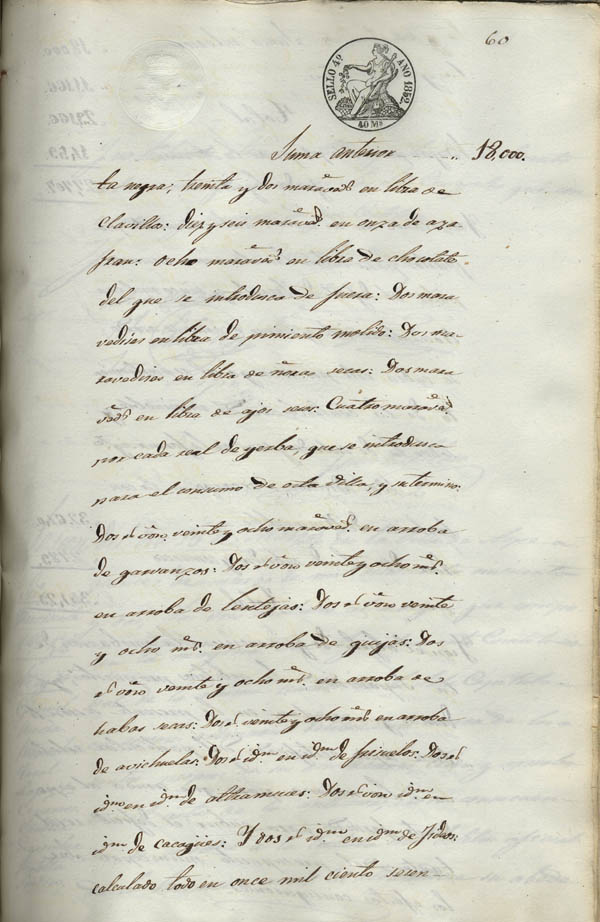 60
SELLO 4º AÑO 1852.
40 Ms
Suma anterior .. 18,000.
ta negra; treinta y dos maraveds. en libra de
clavillo: diez y seis maraveds. en onza de aza
fran: Ocho maraveds. en libra de chocolate
del que se introdusca de fuera: Dos mara
vedises en libra de pimiento molido: Dos ma-
ravedises en libra de ñoras secas: Dos mara
veds. en libra de ajos secos: Cuatro maraveds.
por cada real de yerba, que se introdusca
para el consumo de esta villa, y su termino:
Dos rs. von. veinte y ocho maraveds. en arroba
de garvanzos: Dos rs. von. veinte y ocho ms.
en arroba de lentejas: Dos rs. von. veinte
y ocho ms. en arroba de guijas: Dos
rs. von. veinte y ocho ms. en arroba de
habas secas: Dos rs. veinte y ocho ms. en arroba
de avichuelas: Dos rs. idm. en idm. de frisuelos: Dos rs.
idm. en idm. de altramuces: Dos rs. von. idm. en
idm. de cacagües: Y dos rs. idm. en idm. de fideos:
calculado todo en once mil ciento sesen-